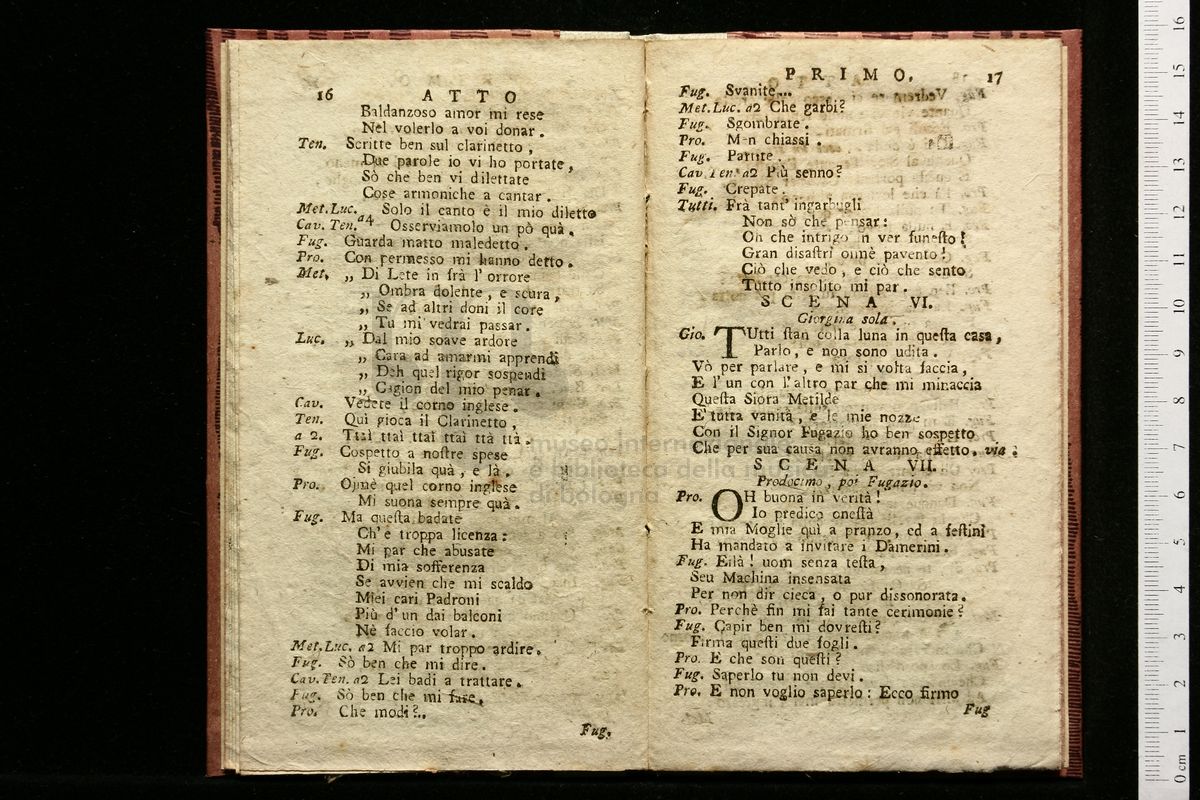 16 ATTO
Baldanzoso amor mi rese
Nel volerlo a voi donar.
Ten. Scritte ben sul clarinetto,
Due parole io vi ho portate,
Sò che ben vi dilettate
Cose armoniche a cantar.
Met.Luc. Solo il canto è il mio diletto
a4
Cav. Ten. Osserviamolo un pò quà.
Fug. Guarda matto maledetto.
Pro. Con permesso mi hanno detto.
Met. „ Di Lete in frà l'orrore
„ Ombra dolente, e scura,
„ Se ad altri doni il core
„ Tu mi vedrai passar.
Luc. „ Dal mio soave ardore
„ Cara ad amarmi apprendi
„ Deh quel rigor sospendi
„ Cagion del mio penar.
Cav. Vedete il corno inglese.
Ten. Quì gioca il Clarinetto,
a 2. Ttai ttai ttai ttai ttà ttà.
Fug. Cospetto a nostre spese
Si giubila quà, e là.
Pro. Ojmè quel corno inglese
Mi suona sempre quà.
Fug. Ma questa badate
Ch'è troppa licenza:
Mi par che abusate
Di mia sofferenza
Se avvien che mi scaldo
Miei cari Padroni
Più d'un dai balconi
Nè faccio volar.
Met.Luc. a2 Mi par troppo ardire.
Fug. Sò ben che mi dire.
Cav.Ten. a2 Lei badi a trattare.
Fug. Sò ben che mi fare.
Pro. Che modi?..
Fug.
PRIMO. 17
Fug. Svanite...
Met.Luc. a2 Che garbi?
Fug. Sgombrate.
Pro. Men chiassi.
Fug. Partite.
Cav.Ten. a2 Più senno?
Fug. Crepate.
Tutti. Frà tant' ingarbugli
Non sò che pensar:
Oh che intrigo in ver funesto!
Gran disastri oimè pavento!
Ciò che vedo, e ciò che sento
Tutto insolito mi par.
SCENA VI.
Giorgina sola.
Gio. TUtti stan colla luna in questa casa,
Parlo, e non sono udita.
Vò per parlare, e mi si volta faccia,
E l'un con l'altro par che mi minaccia
Questa Siora Metilde
E' tutta vanità, e le mie nozze
Con il Signor Fugazio ho ben sospetto
Che per sua causa non avranno effetto. via.
SCENA VII.
Prodocimo, poi Fugazio.
Pro. OH buona in verità!
Io predico onestà
E mia Moglie quì a pranzo, ed a festini
Ha mandato a invitare i Damerini.
Fug. Eilà! uom senza testa,
Seu Machina insensata
Per non dir cieca, o pur dissonorata.
Pro. Perchè fin mi fai tante cerimonie?
Fug. Capir ben mi dovresti?
Firma questi due fogli.
Pro. E che son questi?
Fug. Saperlo tu non devi.
Pro. E non voglio saperlo: Ecco firmo
Fug
museo internazionale
e biblioteca della musica
di bologna
0 cm 1 2 3 4 5 6 7 8 9 10 11 12 13 14 15 16